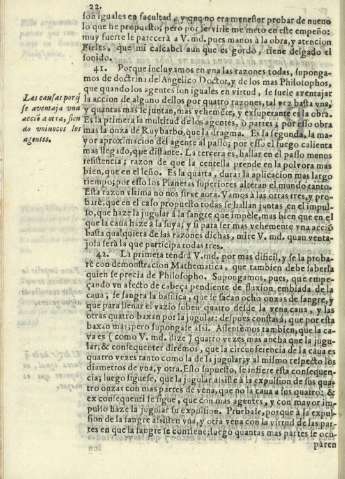 22.
son iguales en facultad, y que no era menester probar de nuevo
lo que he propuesto, pero por servirle me meto en este empeño:
muy fuerte le parecerà a V. md. pues manos à la obra, y atencion
Fieles, que mi calcabel aun que es gordo, tiene delgado el
sonido.
41. Porque incluyamos en vna las razones todas, suponga-
mos de doctrina del Angelico Doctor, y de los mas Philosophos,
que quando los agentes son iguales en virtud, se suele aventajar
la accion de alguno dellos por quatro razones, tal vez basta vna,
y quantas mas se juntan, mas vehemente, y exuperante es la obra.
Es la primera la multitud de los agentes, ò partes; y por esso obra
mas la onza de Ruybarbo, que la dragma. Es la segunda, la ma-
yor aproximacion del agente al passo; por esso el fuego calienta
mas llegado, que distante. La tercera es, hallar en el passo menos
resistencia; razon de que la centella prende en la polvora mas
bien, que en el leño. Es la quarta, durar la aplicacion mas largo
tiempo; por esso los Planetas superiores alteran el mundo tanto.
Esta razon vltima no nos sirve aora. Vamos à las otras tres, y pro-
barè, que en el caso propuesto todas se hallan juntas en el impul-
so, que haze la jugular à la sangre que impele, mas bien que en el
que la caua haze à la suya; y si para ser mas vehemente vna acciò
basta qualquiera de las razones dichas, mire V. md. quan venta-
josa serà la que participa todas tres.
Las causas porq̃
se aventaja vna
acciò a otra, sien
do vnivocos los
agentes.
42. La primera tendrà V. md. por mas dificil, y se la proba-
rè con demonstracion Mathematica, que tambien debe saberla
quien se precia de Philosopho. Supongamos, pues, que empe-
çando vn afecto de cabeça pendiente de fluxion, embiada de la
caua, se sangra la basilica, que se sacan ocho onzas de sangre, y
que para llenar el vazio suben quatro desde la vena caua, y las
otras quatro baxan por la jugular: despues constarà, que por esta
baxan mas; pero supongase assi. Assentemos tambien, que la ca-
va es (como V. md. dize) quatro vezes mas ancha que la jugu-
lar; & conseguenter dirèmos, que la circunferencia de la caua es
quatro vezes tanto como la de la jugular, al mismo respecto los
diametros de vna, y otra. Esto supuesto, se infiere esta consequen-
cia; luego siguese, que la jugular assiste à la expulsion de sus qua-
tro onzas con mas partes de vena, que no la caua à sus quatro; &
ex consequenti se sigue, que con mas agentes, y con mayor im-
pulso haze la jugular su expulsion. Pruebase, porque à la expul-
sion de la sangre assisten vna, y otra vena con la virtud de las par-
tes en que la sangre se contiene; luego quantas mas partes se ocu-
paren